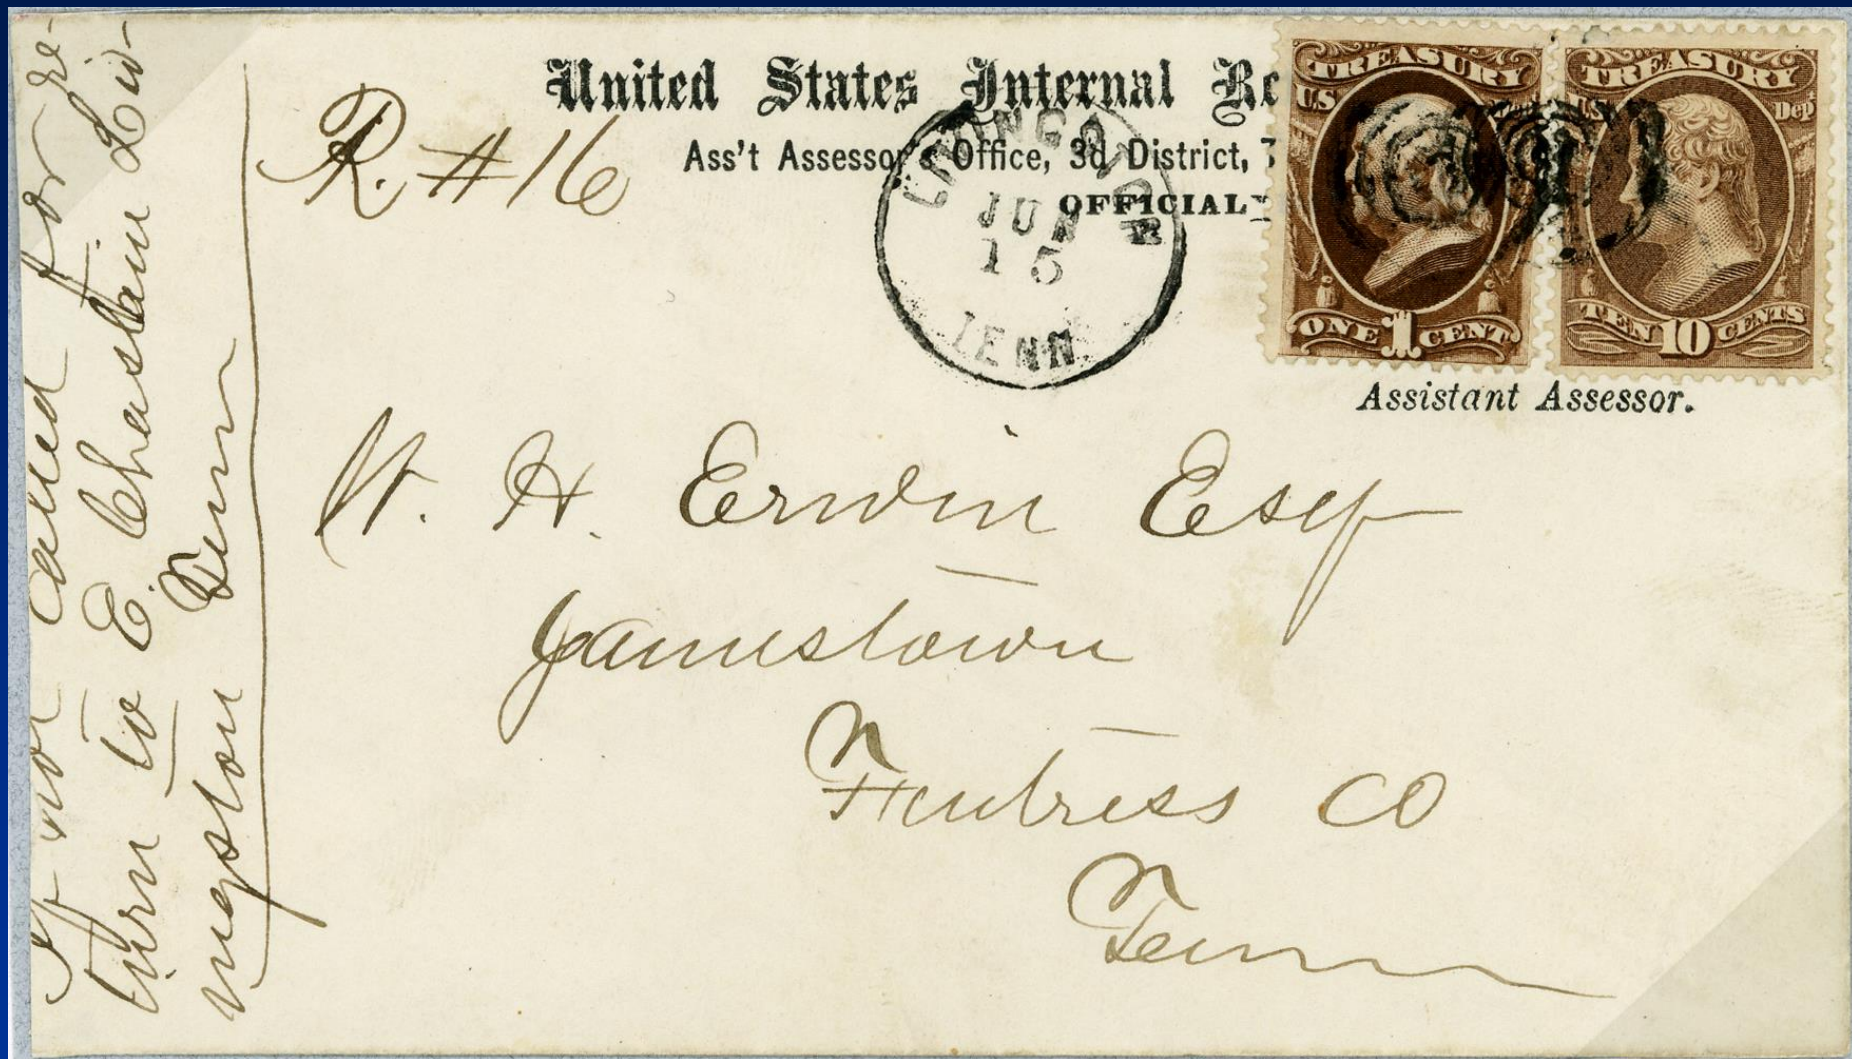 United States Internal Re
Ass't Assessor's Office, 3d District, T
OFFICIAL
R. # 16
JUN
15
TENN
TREASURY
US
ONE 1 CENT
TREASURY
U.S. Dep^t
TEN 10 CENTS
Assistant Assessor.
W. H. Erwin Esq
Jamestown
Fentress CO
Tenn
If not called for re-
turn to E. Chastain Liv-
ingston Tenn